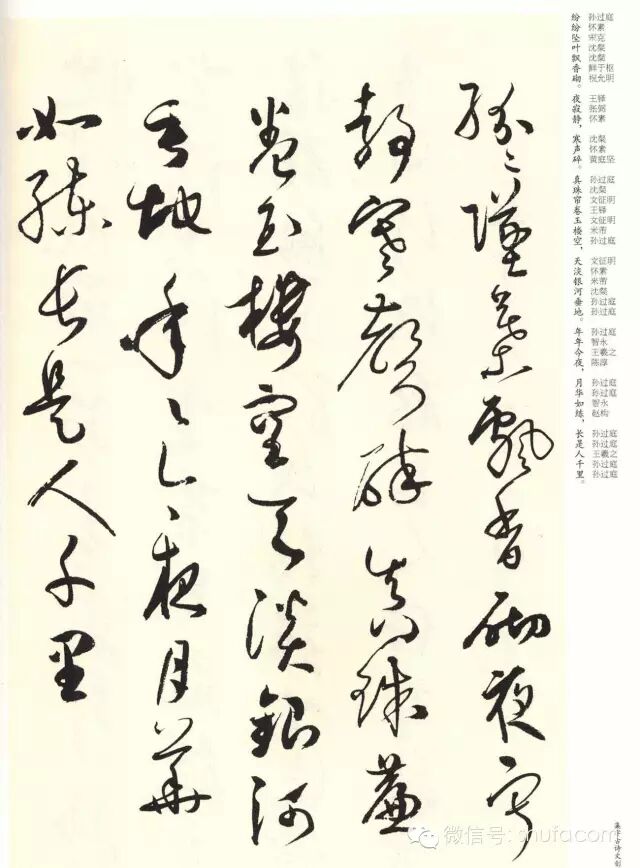 紛々墜葉飄香砌夜寂
靜寒聲碎真珠簾
卷玉樓空天淡銀河
垂地年々今夜月華
如練長是人千里
纷 孙过庭
纷 怀素
坠 宋克
叶 沈粲
飘 沈粲
香 鲜于枢
砌。 祝允明
夜 王铎
寂 张弼
静, 怀素
寒 沈粲
声 怀素
碎。 黄庭坚
真 孙过庭
珠 沈粲
帘 文征明
卷 王铎
玉 文征明
楼 米芾
空, 孙过庭
天 文征明
淡 怀素
银 米芾
河 沈粲
垂 孙过庭
地。 孙过庭
年 孙过庭
年 智永
今 王羲之
夜, 陈淳
月 孙过庭
华 孙过庭
如 智永
练, 赵构
长 孙过庭
是 孙过庭
人 王羲之
千 孙过庭
里。 孙过庭
集字古诗文
微信号: shufacom